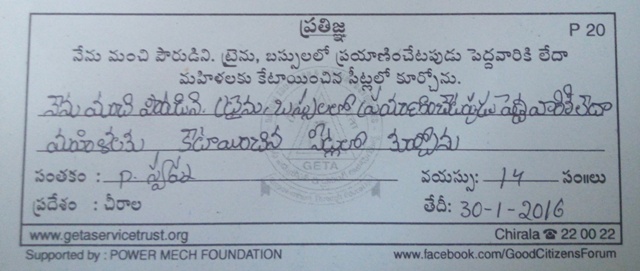 ప్రతిజ్ఞ P 20
నేను మంచి పౌరుడిని. ట్రైను, బస్సులలో ప్రయాణించేటపుడు పెద్దవారికి లేదా
మహిళలకు కేటాయించిన సీట్లల్లో కూర్చోను.
నేను మంచి పౌరుడిని. ట్రైను, బస్సులలో ప్రయాణించేటప్పుడు పెద్దవారికి లేదా
మహిళలకు కేటాయించిన సీట్లలో కూర్చోను
సంతకం : P. వయస్సు: 14 సం॥లు
ప్రదేశం : చీరాల తేదీ: 30-1-2016
GETA
www.getaservicetrust.org Chirala ☎ 22 00 22
Supported by : POWER MECH FOUNDATION www.facebook.com/GoodCitizensForum